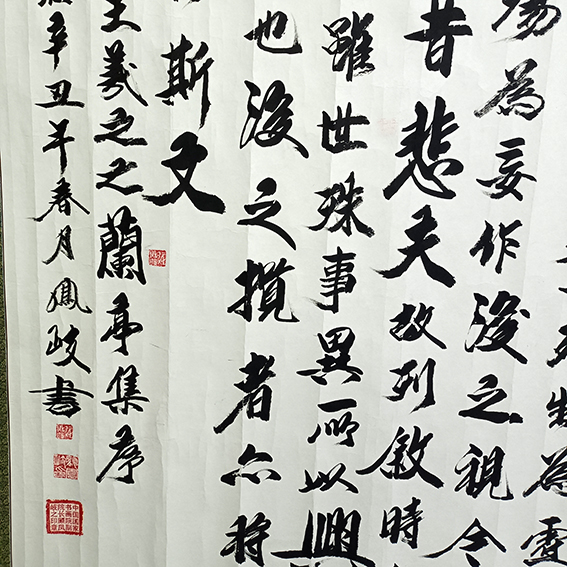 為
殤為妄作後之視今
昔悲夫故列敘時
雖世殊事異所以興
也後之攬者亦將
斯文
王羲之之蘭亭集序
辛丑年春月鳳岐書